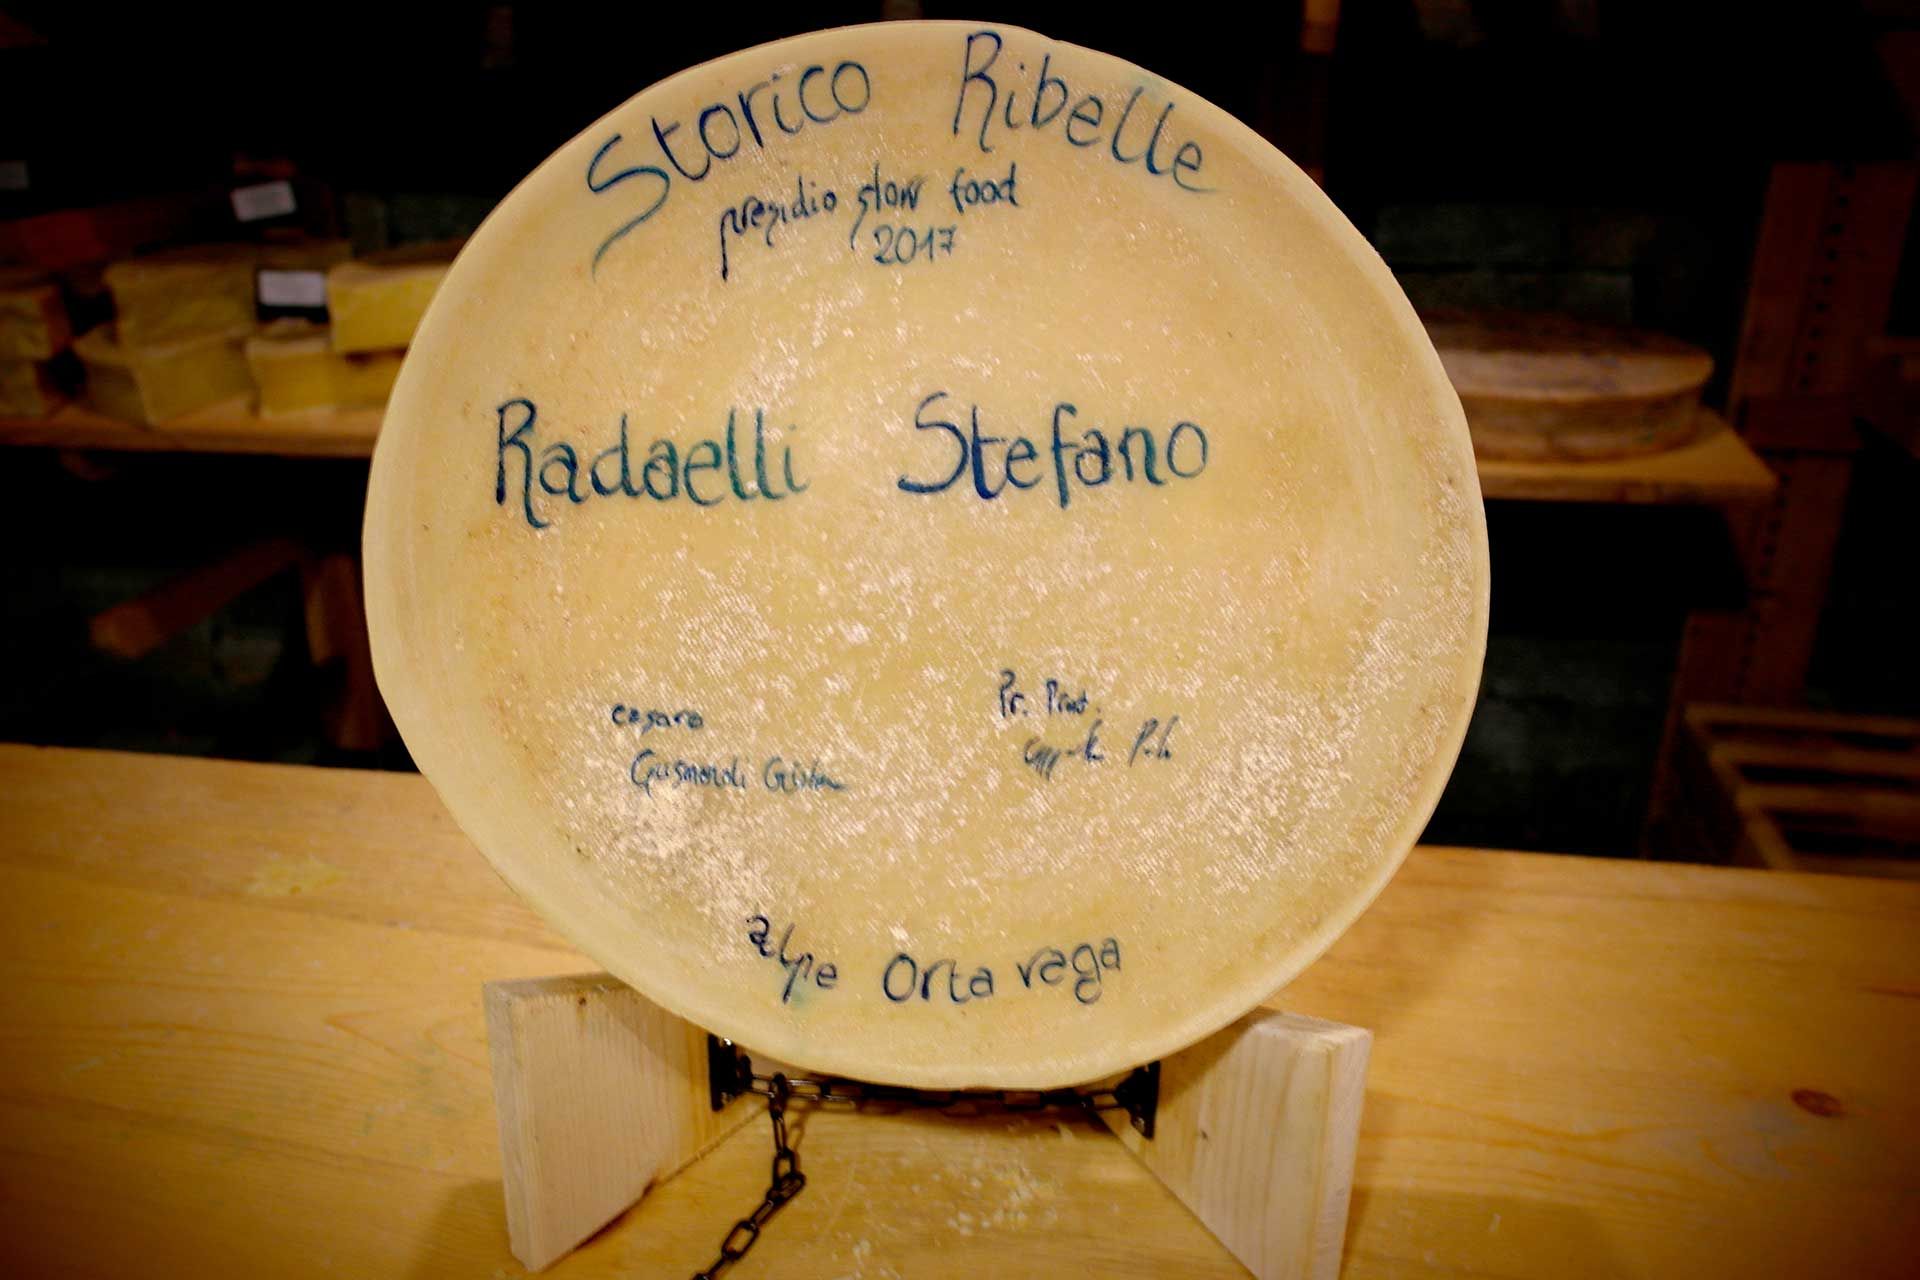 Storico Ribelle
presidio slow food
2017
Radaelli Stefano
casaro
Gusmeroli
Pr. Prod.
alpe Orta vaga